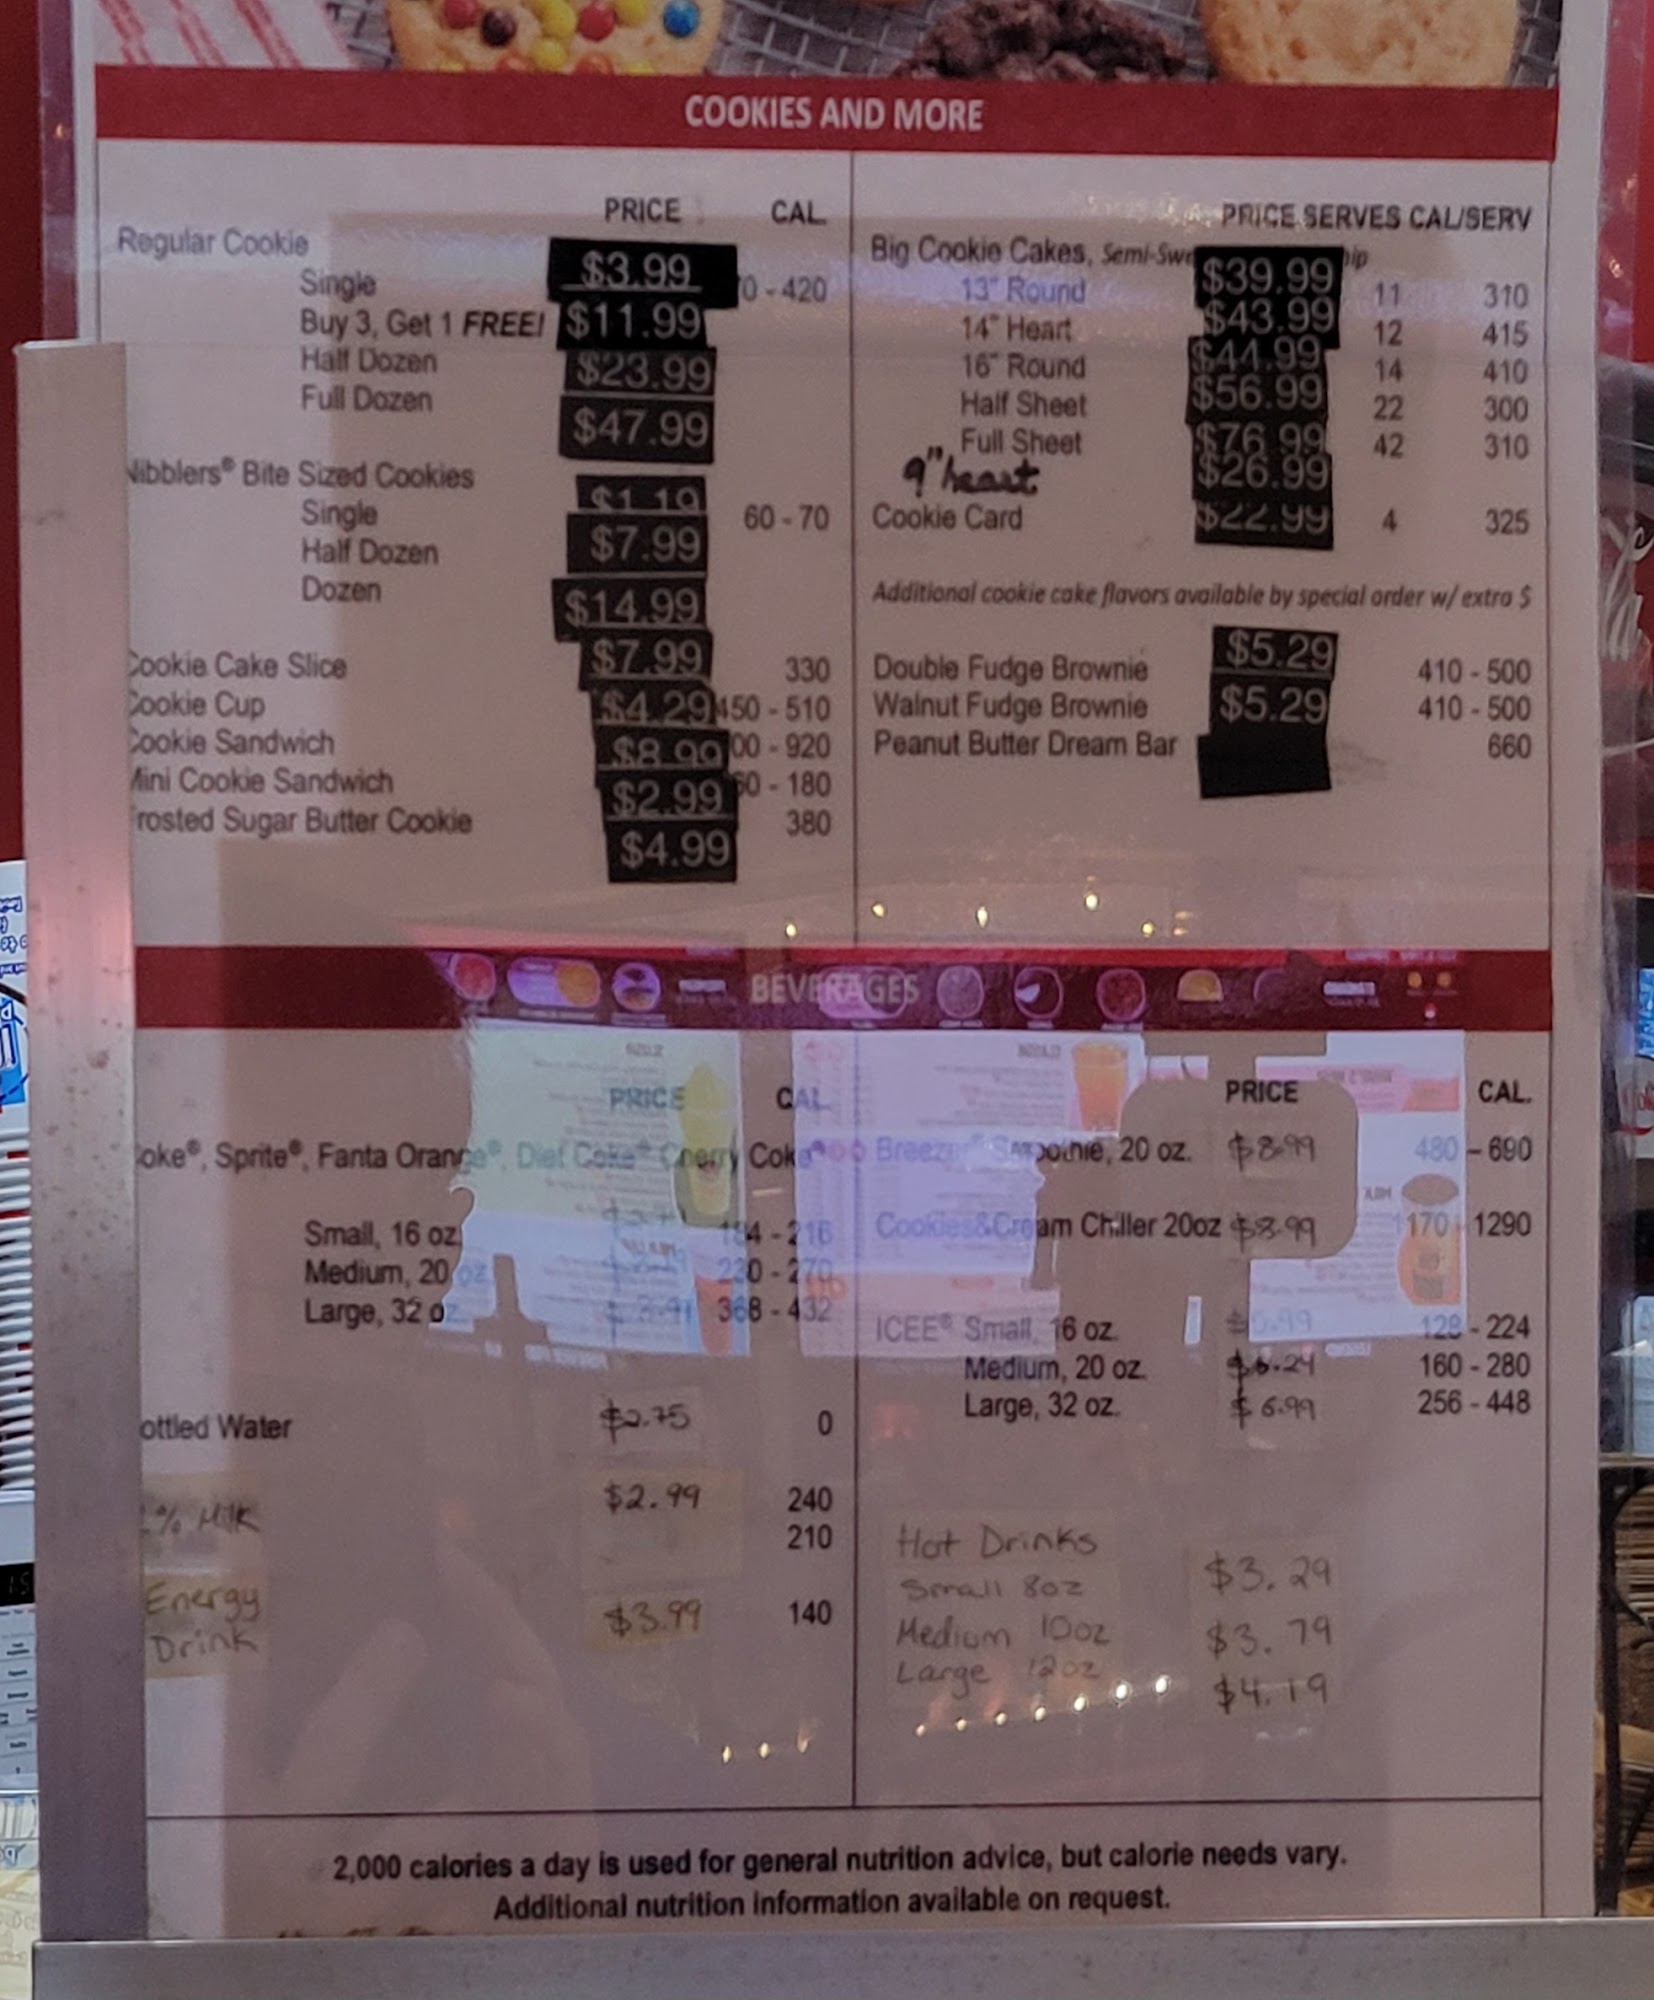 COOKIES AND MORE
PRICE CAL
Regular Cookie
Single $3.99 0 - 420
Buy 3, Get 1 FREE! $11.99
Half Dozen $23.99
Full Dozen $47.99
Nibblers® Bite Sized Cookies
Single $1.19 60 - 70
Half Dozen $7.99
Dozen $14.99
Cookie Cake Slice $7.99 330
Cookie Cup $4.29 450 - 510
Cookie Sandwich $8.99 00 - 920
Mini Cookie Sandwich $2.99 60 - 180
rosted Sugar Butter Cookie $4.99 380
PRICE SERVES CAL/SERV
Big Cookie Cakes, Semi-Swe ip
13" Round $39.99 11 310
14" Heart $43.99 12 415
16" Round $44.99 14 410
Half Sheet $56.99 22 300
Full Sheet $76.99 42 310
9" heart $26.99
Cookie Card $22.99 4 325
Additional cookie cake flavors available by special order w/ extra $
Double Fudge Brownie $5.29 410 - 500
Walnut Fudge Brownie $5.29 410 - 500
Peanut Butter Dream Bar 660
BEVERAGES
PRICE CAL
oke®, Sprite®, Fanta Orange®, Diet Coke® Cherry Coke®
Small, 16 oz 184 - 216
Medium, 20 oz 230 - 270
Large, 32 oz 368 - 432
ottled Water $2.75 0
% Milk $2.99 240
210
Energy $3.99 140
Drink
PRICE CAL.
Breezer® Smoothie, 20 oz. $8.99 480 - 690
Cookies&Cream Chiller 20oz $8.99 1170 - 1290
ICEE® Small, 16 oz. $5.99 128 - 224
Medium, 20 oz. $6.24 160 - 280
Large, 32 oz. $6.99 256 - 448
Hot Drinks
Small 8oz $3.29
Medium 10oz $3.79
Large 12oz $4.19
2,000 calories a day is used for general nutrition advice, but calorie needs vary.
Additional nutrition information available on request.